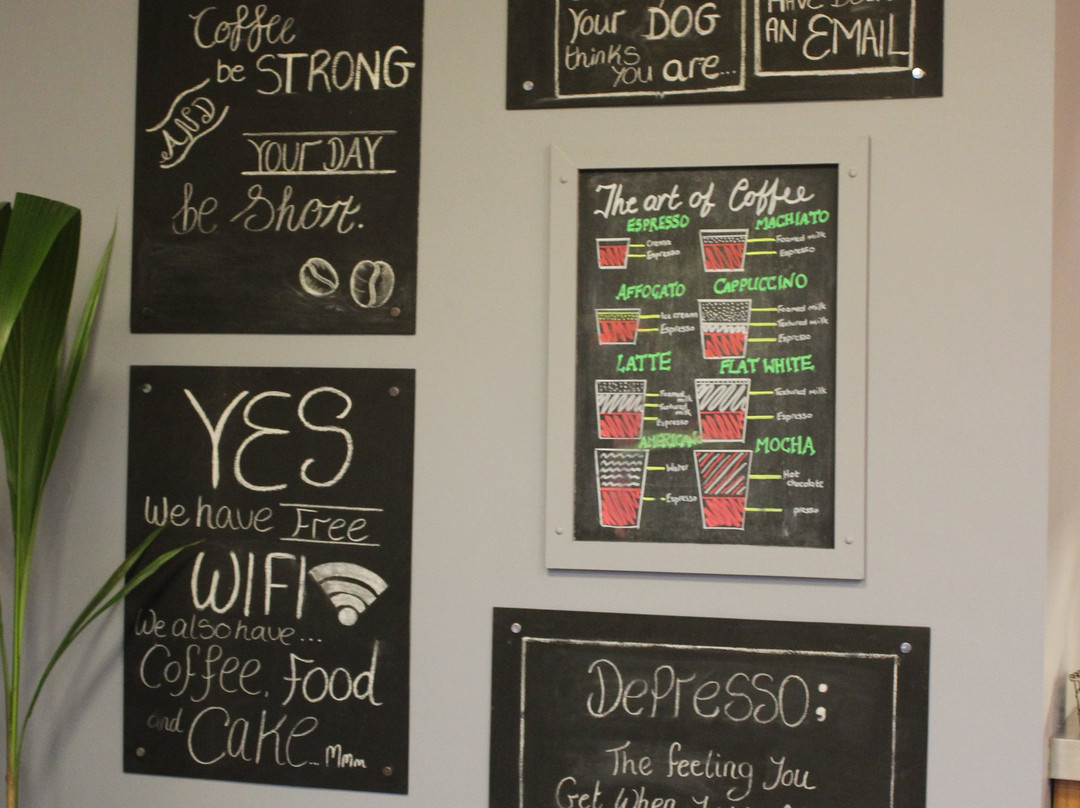 Coffee
be STRONG
AND
YOUR DAY
be Short.
YES
We have Free
WIFI
We also have...
Coffee, Food
and Cake... Mmm
Your DOG
thinks
you are...
HAVE BEEN
AN EMAIL
The art of Coffee
ESPRESSO
Crema
Espresso
MACHIATO
Foamed milk
Espresso
AFFOGATO
Ice cream
Espresso
CAPPUCCINO
Foamed milk
Textured milk
Espresso
LATTE
Foamed milk
Textured milk
Espresso
FLAT WHITE
Textured milk
Espresso
AMERICANO
Water
Espresso
MOCHA
Hot
chocolate
presso
Depresso:
The feeling You
Get When